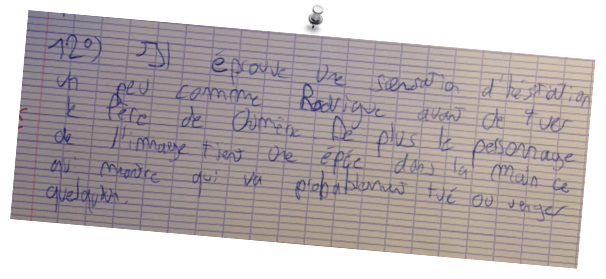 12°) Il éprouve une sensation d'hésitation
un peu comme Rodrigue avant de tuer
le Père de Chimène. De plus le personnage
de l'image tient une épée dans la main ce
qui montre qui va probablement tué ou venger
quelqu'un.